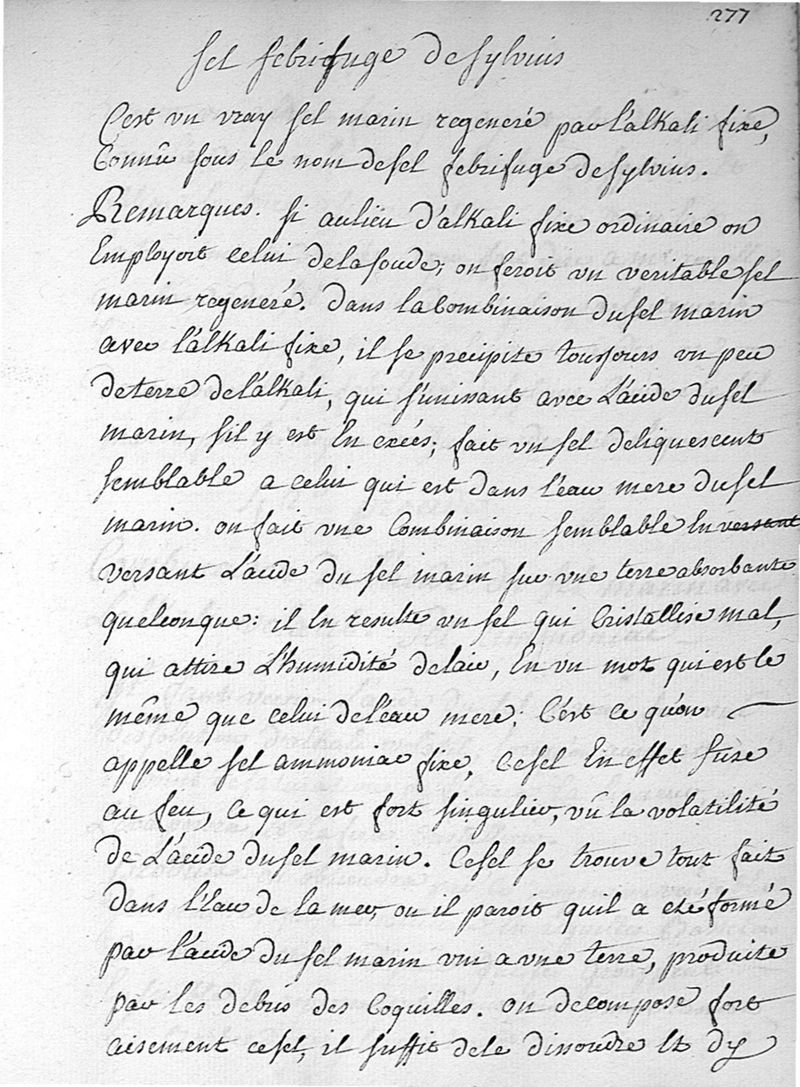 277
sel febrifuge de sylvius
C'est un vray sel marin regeneré par l'alkali fixe,
Connû sous le nom de sel febrifuge de sylvius.
Remarques. si au lieu d'alkali fixe ordinaire on
Employoit celui de la soude; on feroit un veritable sel
marin regeneré. dans la Combinaison du sel marin
avec l'alkali fixe, il se precipite tousjours un peu
de terre de l'alkali, qui s'unissant avec L'acide du sel
marin, s'il y est En excés; fait un sel deliquescent
semblable a celui qui est dans l'eau mere du sel
marin. on fait une Combinaison semblable En versant
versant L'acide du sel marin sur une terre absorbante
quelconque: il En resulte un sel qui Cristallise mal,
qui attire L'humidité de l'air, En un mot qui est le
même que celui de l'eau mere; C'est ce qu'on
appelle sel ammoniac fixe, Ce sel En effet fuse
au feu, ce qui est fort singulier, vû la volatilité
de L'acide du sel marin. Ce sel se trouve tout fait
dans l'Eau de la mer, ou il paroit qu'il a eté formé
par l'acide du sel marin uni a une terre, produite
par les debris des Coquilles. on decompose fort
aisement ce sel, il suffit de le dissoudre Et d'y